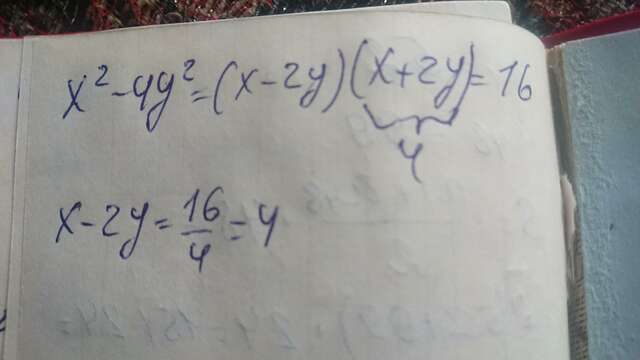 x²-4y²=(x-2y)(x+2y)=16
4
x-2y=16/4=4